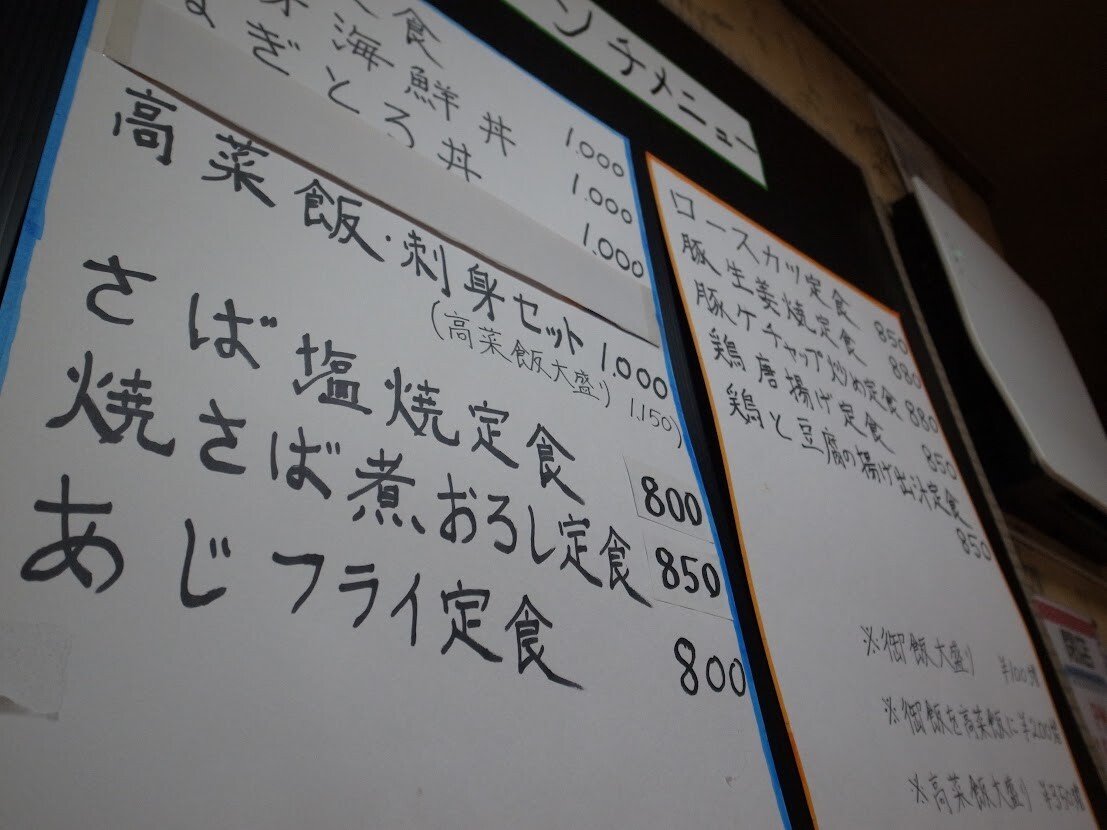 ンチメニュー
食
海鮮丼 1.000
ぎとろ丼 1.000
1.000
高菜飯・刺身セット 1.000
(高菜飯大盛り 1.150)
さば塩焼定食 800
焼さば煮おろし定食 850
あじフライ定食 800
ロースカツ定食 850
豚生姜焼定食 880
豚ケチャップ炒め定食 880
鶏唐揚げ定食 850
鶏と豆腐の揚げ出汁定食
850
※御飯大盛り ¥100増
※御飯を高菜飯に¥200増
※高菜飯大盛り ¥350増